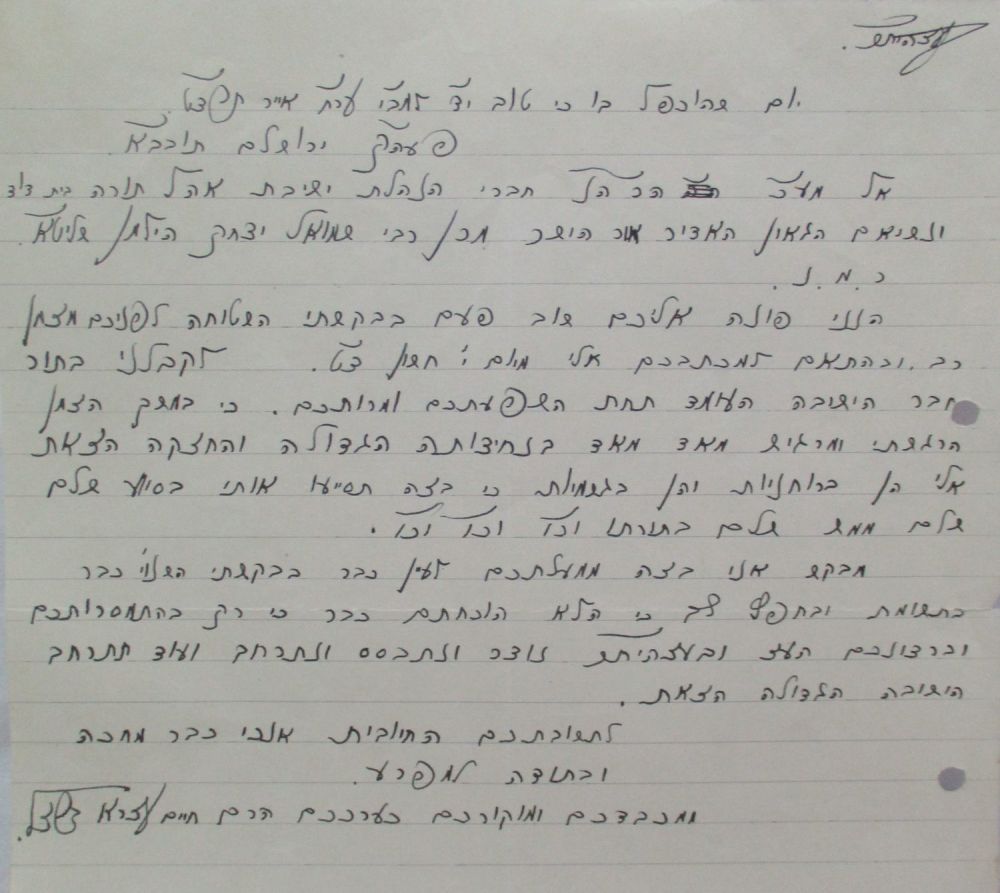 בעזהשי"ת.
יום שהוכפל בו כי טוב י"ד למב"י ער"ח אייר תרצ"ט.
פעה"ק ירושלם תובב"א
אל מע"כ הר' חברי הנהלת ישיבת אהל תורה בית דוד
ונשיאם הגאון האדיר אור הישר מרן רבי שמואל יצחק הילמן שליט"א.
כ. מ. נ.
הנני פונה אליכם שוב פעם בבקשתי השטוחה לפניכם מזמן
רב. ובהתאם למכתבכם אלי מיום י' חשון צ"ט. לקבלני בתור
חבר הישיבה העומד תחת השפעתכם ומרותכם. כי במשך הזמן
הרגשתי ומרגיש מאד מאד בנחיצותה הגדולה והחזקה הזאת
אלי הן ברוחניות והן בגשמיות כי בזה תסייעו אותי בסיוע שלם
שלם ממש שלם בתורתו וכו' וכו' וכו'.
מבקש אני בזה ממעלתכם לעיין כבר בבקשתי השנוי' כבר
בתשומת ובחפץ לב כי הלא הוכחתם כבר כי רק בהתמסרותכם
וברצונכם העז ובעזהי"ת נוצר ונתבסס ונתרחב ועוד תתרחב
הישיבה הגדולה הזאת.
לתשובתכם החיובית אנכי כבר מחכה
ובתודה למפרע.
ממכבדכם ומוקירכם כערככם הרם חיים עזרא